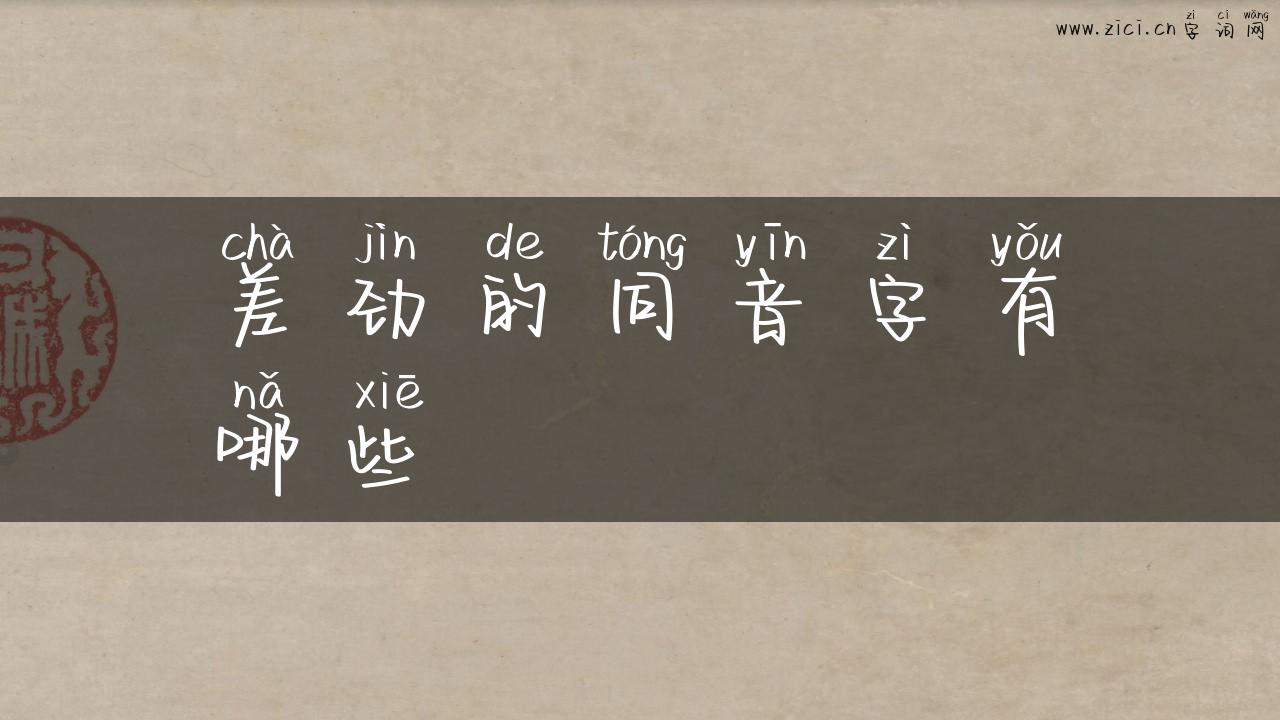 zì cí wǎng
www.zici.cn字词网
chà jìn de tóng yīn zì yǒu
差劲的同音字有
nǎ xiē
哪些